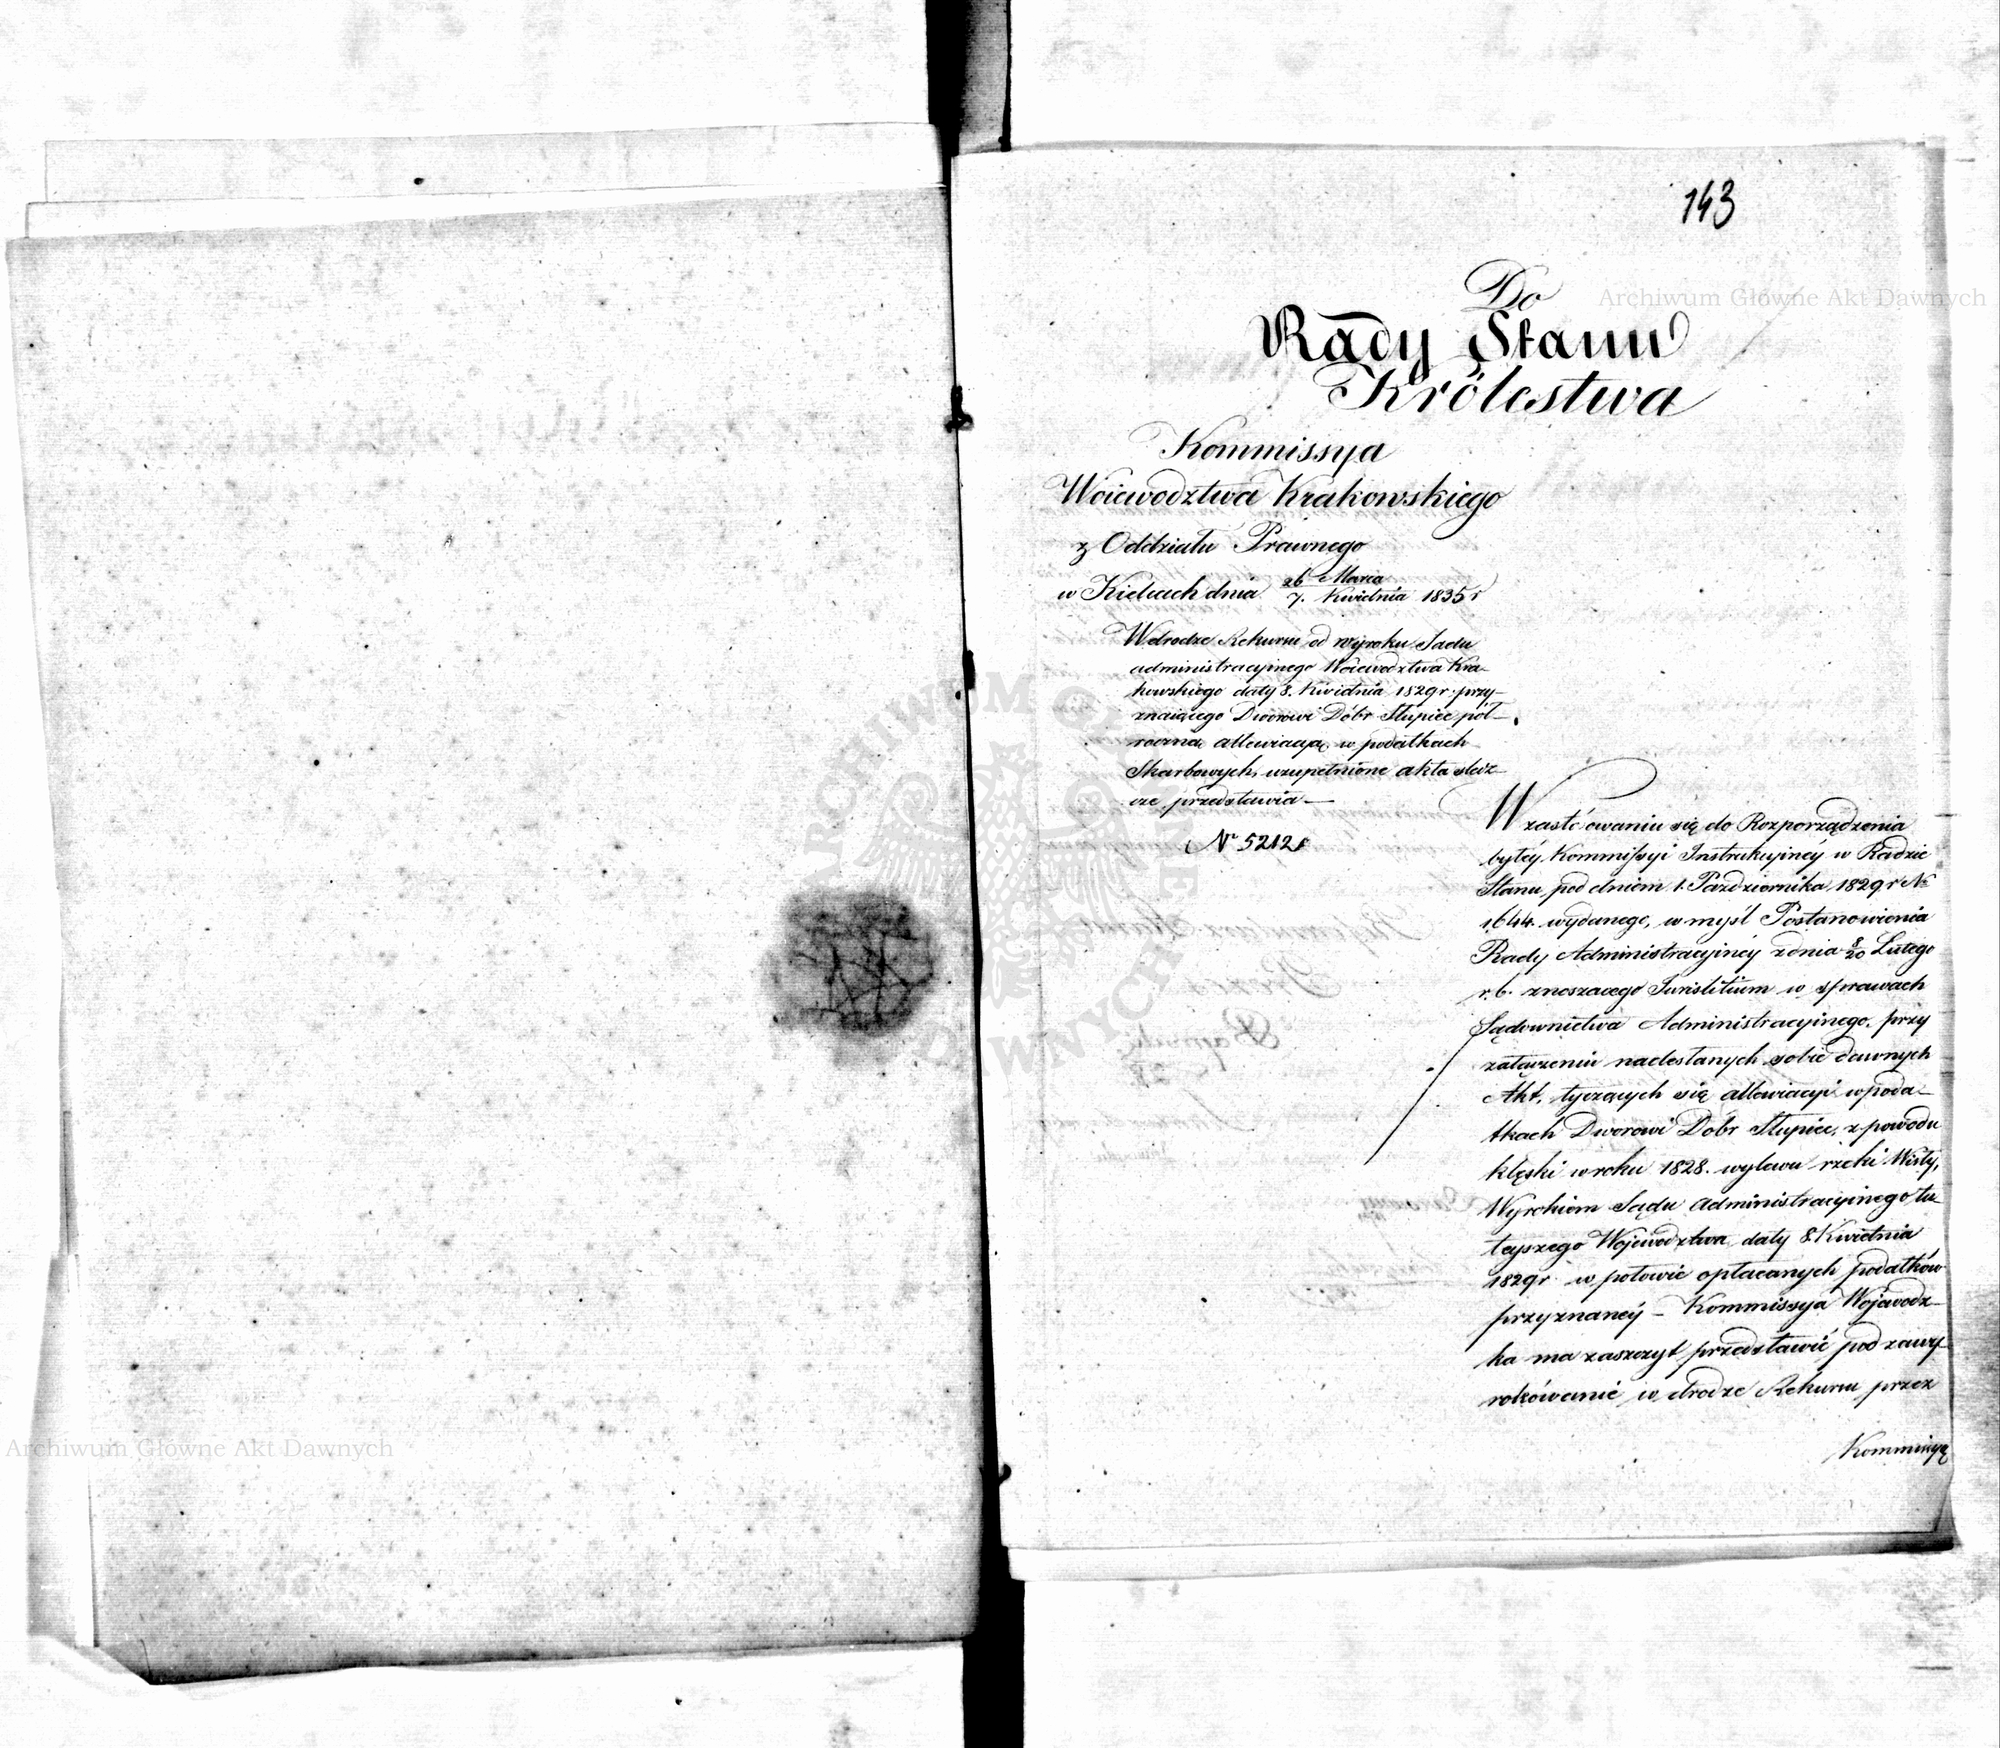 143
Do
Rady Stanu
Królestwa
Kommissya
Woiewodztwa Krakowskiego
z Oddziału Prawnego
w Kielcach dnia 26 Marca / 7. Kwietnia 1835 r
W drodze Rekursu od wyroku Sądu
administracyinego Woiewodztwa Kra-
kowskiego daty 8. Kwietnia 1829 r. przy-
znaiącego Dworowi Dóbr Słupiec pół-
roczną allewiacyą w podatkach
Skarbowych, uzupełnione akta
przedstawia —
N 5212
W zastósowaniu się do Rozporządzenia
byłéy Kommissyi Instrukcyinéy w Radzie
Stanu pod dniem 1. Października 1829 r No
1644. wydanego, w myśl Postanowienia
Rady Administracyinéy z dnia 8/20 Lutego
r. b. znoszącego Iuristitium w sprawach
Sądownictwa Administracyinego, przy
załączeniu nadesłanych sobie dawnych
Akt, tyczących się allewiacyi w poda-
tkach Dworowi Dóbr Słupiec, z powodu
klęski w roku 1828. wylewu rzeki Wisły,
Wyrokiem Sądu Administracyinego tu-
teyszego Wojewodztwa daty 8. Kwietnia
1829 r w połowie opłacanych podatków
przyznanéy — Kommissya Wojewodz-
ka ma zaszczyt przedstawić pod zawy-
rokówanie w drodze Rekursu przez
Kommissyą
Archiwum Główne Akt Dawnych
Archiwum Główne Akt Dawnych
ARCHIWUM GŁÓWNE AKT DAWNYCH